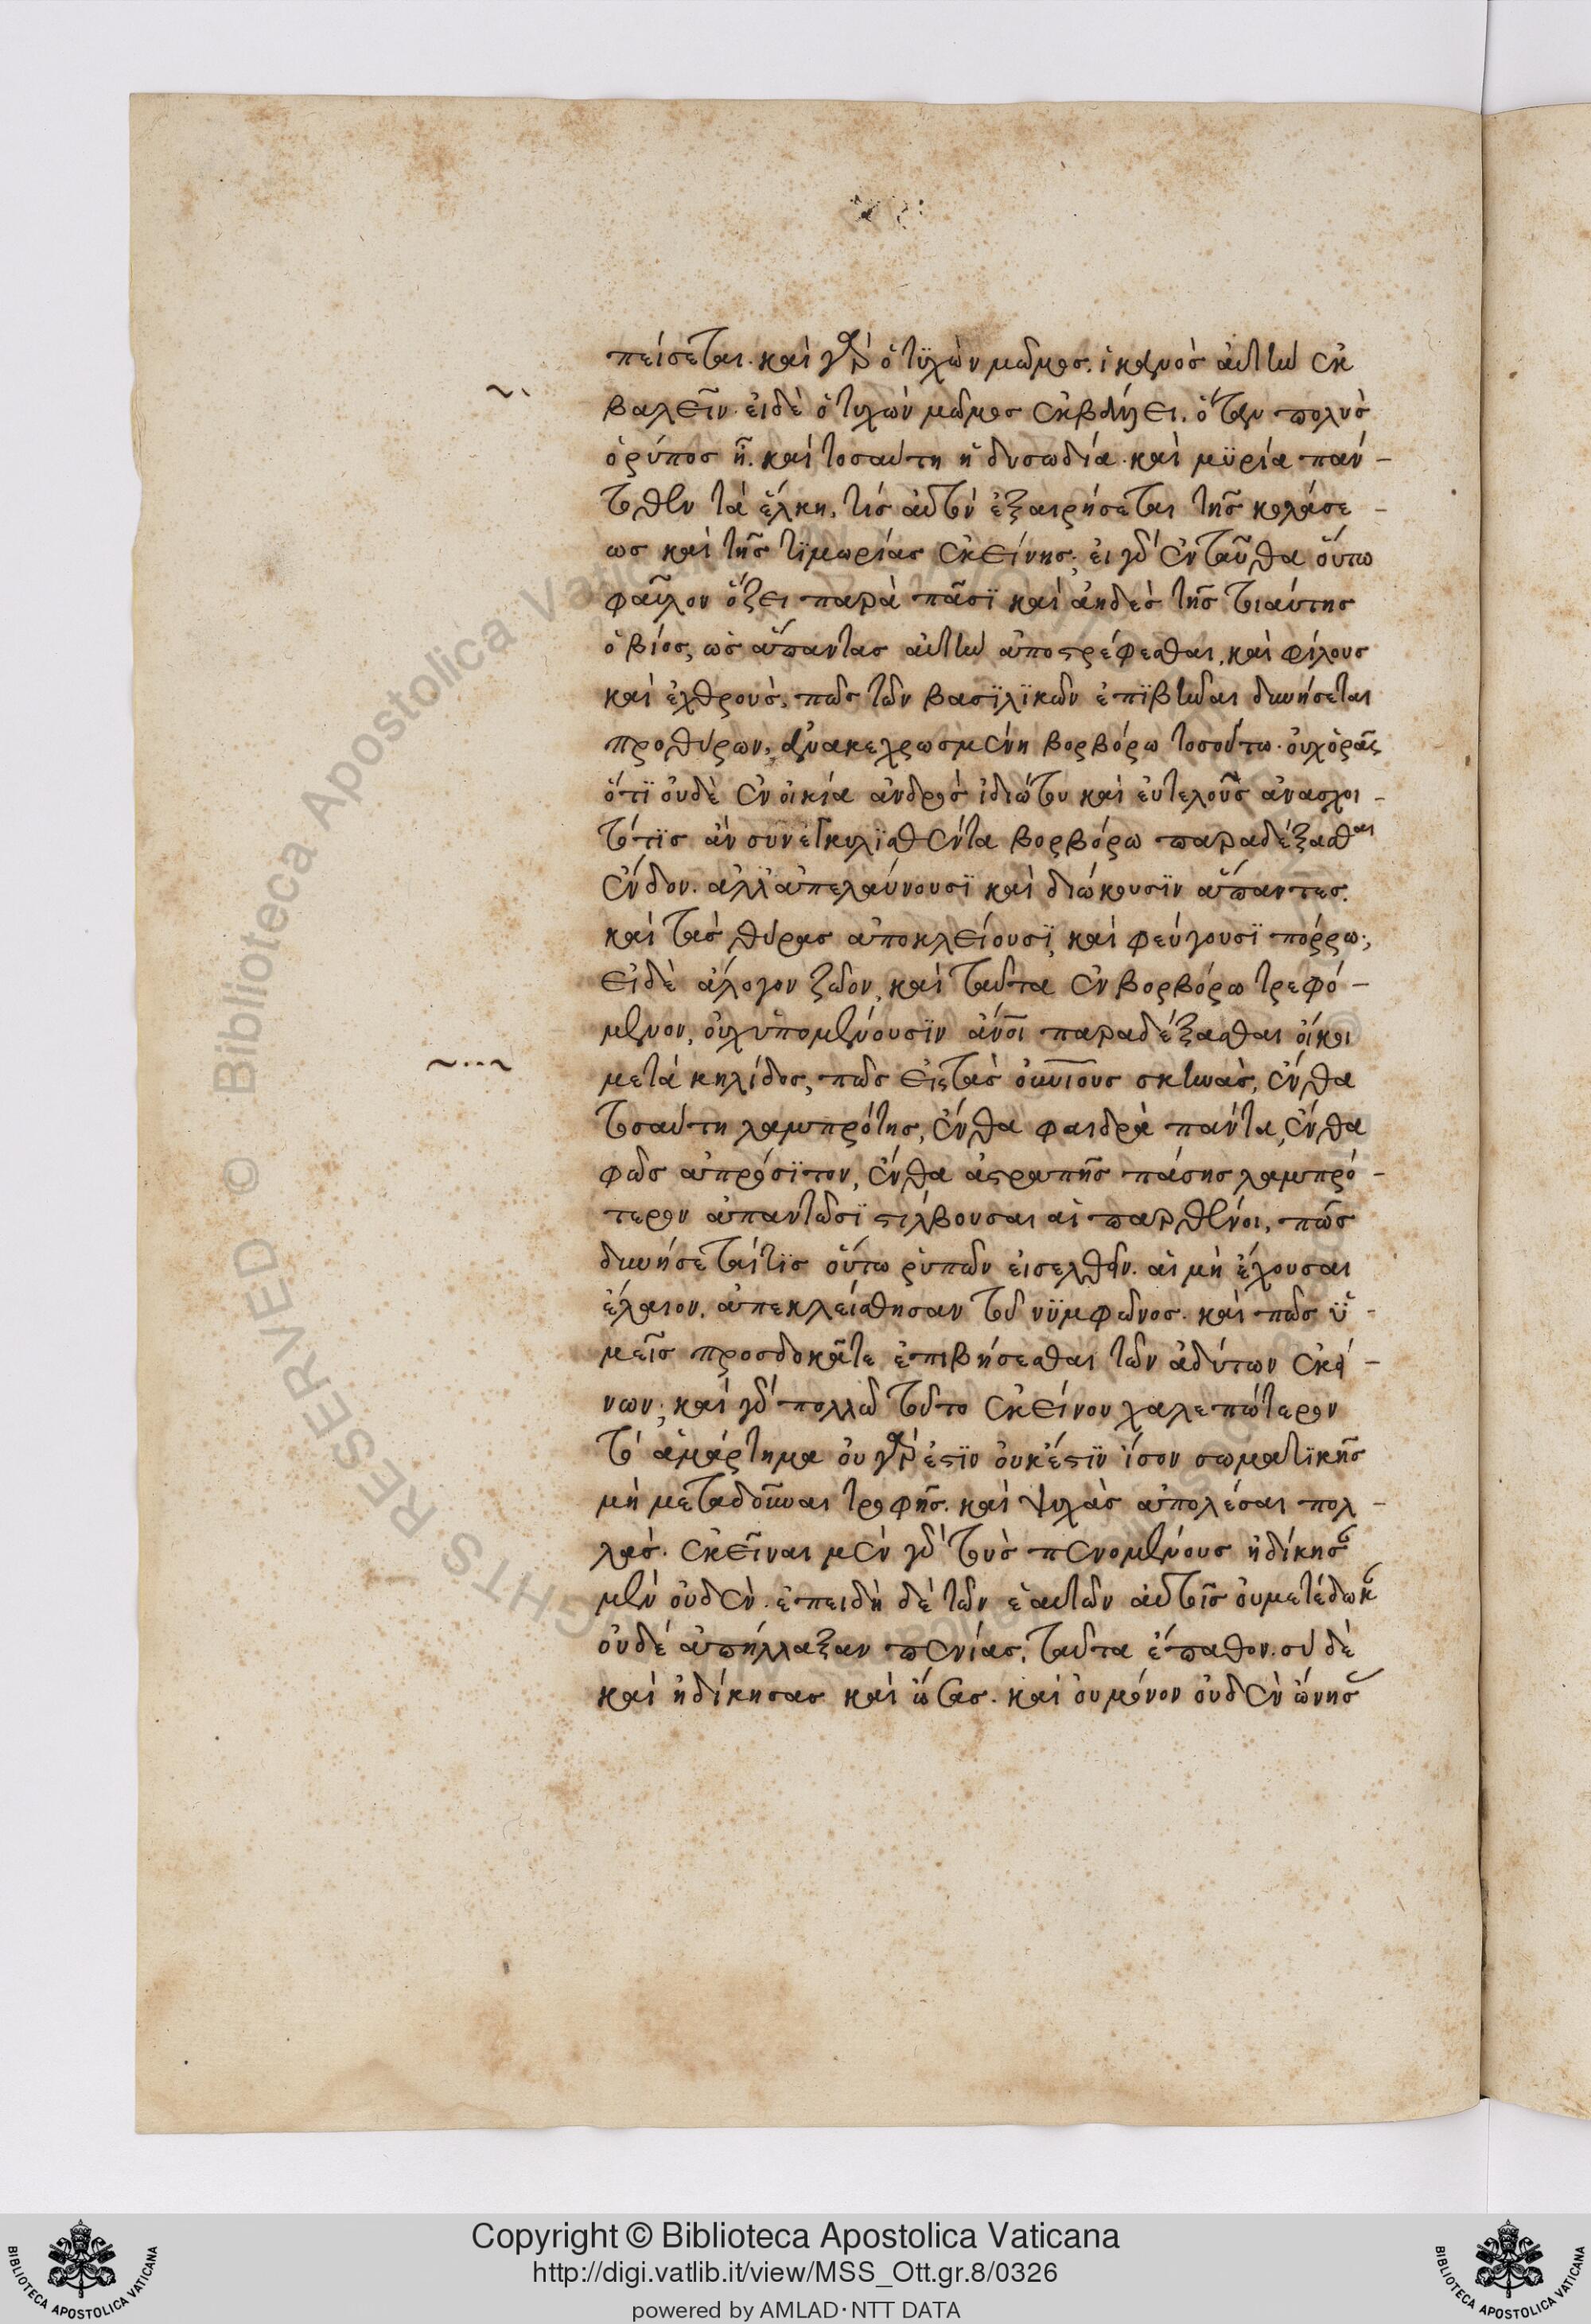 πείσεται. καὶ γὰρ ὁ τϋχὼν μῶμος. ἱκανὸς αὐτὴν ἐκ
βαλεῖν. εἰδὲ ὁ τυχὼν μῶμος ἐκβάλλει. ὅταν πολὺς
ὁ ρύπος ἦ. καὶ τοσαύτη ἡ δυσωδία. καὶ μϋρία πάν-
τοθεν τὰ ἕλκη, τίς αὐτὸν ἐξαιρήσεται τῆς κολάσε-
ως καὶ τῆς τϊμωρίας ἐκείνης; εἰ γὰρ ἐνταῦθα οὕτω
φαῦλον ὄζει παρὰ πᾶσϊ καὶ ἀηδὲς τῆς τοιαύτης
ὁ βίος, ὡς ἅπαντας αὐτὴν ἀποστρέφεσθαι, καὶ φίλους
καὶ ἐχθροὺς, πῶς τῶν βασϊλϊκῶν ἐπϊβῆναι δυνήσεται
προθύρων, ἀνακεχρωσμένη βορβόρω τοσούτω. οὐχὁρᾶς
ὅτϊ οὐδὲ ἐν οἰκία ἀνδρὸς ἰδιώτου καὶ εὐτελοῦς ἀνασχοι-
τότϊς ἂν σϋνεγκυλϊσθέντα βορβόρω παραδέξασθαι
ἔνδον. ἀλλἀπελαύνουσϊ καὶ διώκουσϊν ἅπαντες.
καὶ τὰς θύρας ἀποκλείουσϊ καὶ φεύγουσϊ πόρρω.,
εἰδὲ ἄλογον ζῶον, καὶ ταῦτα ἐν βορβόρω τρεφό-
μενον, οὐχὑπομένουσϊν ἄνοι παραδέξασθαι οἴκοι
μετὰ κηλίδος, πῶς εἰςτὰς οὐνίους σκηνὰς, ἔνθα
τοσαύτη λαμπρότης, ἔνθα φαιδρὰ πάντα, ἔνθα
φῶς ἀπρόσϊτον, ἔνθα ἀστραπῆς πάσης λαμπρό-
τερον ἀπαντῶσϊ στίλβουσαι αἱ παρθένοι, πῶς
δυνήσεταίτϊς οὕτω ρϋπῶν εἰσελθεῖν. αἱ μὴ ἔχουσαι
ἔλαιον. ἀπεκλείσθησαν τοῦ νϋμφῶνος. καὶ πῶς ὑ-
μεῖς προσδοκᾶτε ἐπιβήσεσθαι τῶν ἀδύτων ἐκεί-
νων; καὶ γὰρ πολλῶ τοῦτο ἐκείνου χαλεπώτερον
τὸ ἁμάρτημα οὐ γὰρ ἔστϊν οὐκέστϊν ἴσον σωματϊκῆς
μὴ μεταδοῦναι τροφῆς. καὶ ψυχὰς ἀπολέσαι πολ-
λάς. ἐκεῖναι μὲν γὰρ τοὺς πενομένους ἠδίκησαν
μὲν οὐδέν. ἐπειδὴ δὲ τῶν ἑαυτῶν αὐτοῖς οὐμετέδωκαν
οὐδὲ ἀπήλλαξαν πενίας, ταῦτα ἔπαθον. σὺ δὲ
καὶ ἠδίκησας καὶ ὦσας. καὶ οὐμόνον οὐδὲν ὤνησας
Copyright © Biblioteca Apostolica Vaticana
http://digi.vatlib.it/view/MSS_Ott.gr.8/0326
powered by AMLAD·NTT DATA